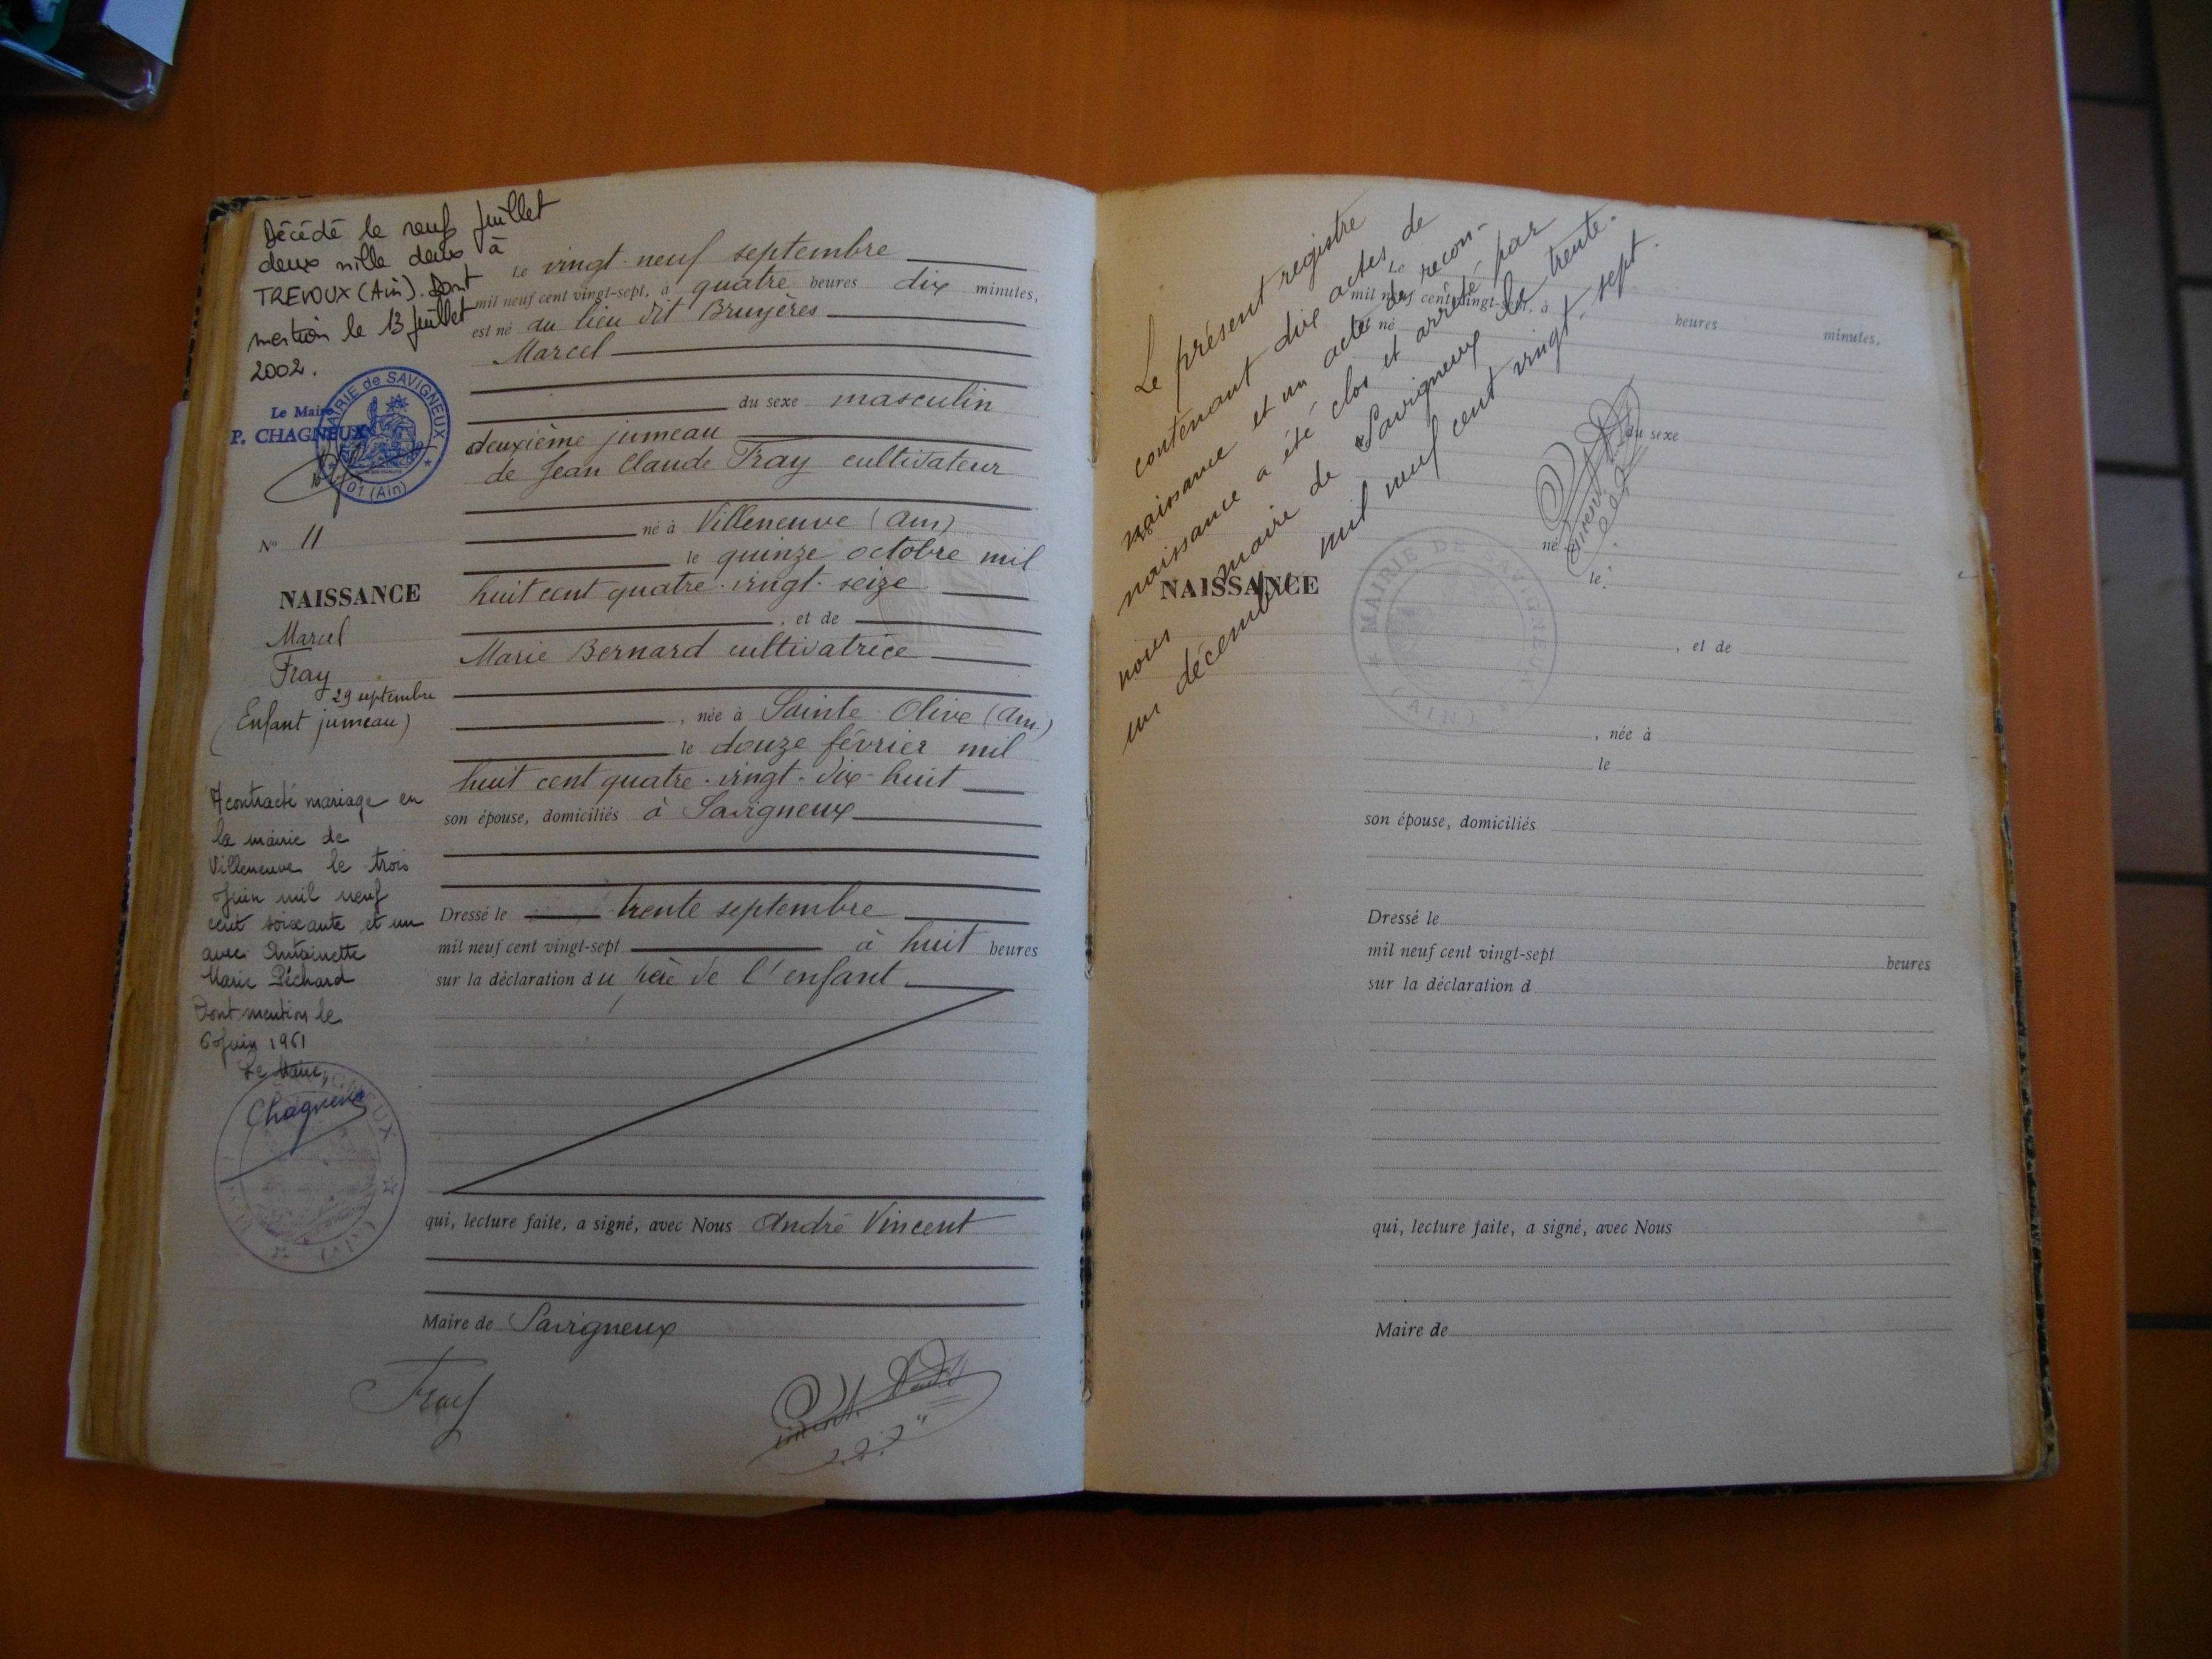 Décédé le neuf Juillet
deux mille deux à
TREVOUX (Ain). Dont
mention le 13 Juillet
2002.
Le Maire
P. CHAGNEUX
MAIRIE de SAVIGNEUX
01 (Ain)
N° 11
NAISSANCE
Marcel
Fray
29 septembre
(Enfant jumeau)
A contracté mariage en
la mairie de
Villeneuve le trois
Juin mil neuf
cent soixante et un
avec Antoinette
Marie Péchard
Dont mention le
6 Juin 1961
Le Maire,
Chagneux
(AIN)
Le vingt-neuf septembre
mil neuf cent vingt-sept, à quatre heures dix minutes,
est né au lieu dit Bruyères
Marcel
du sexe masculin
deuxième jumeau
de Jean Claude Fray cultivateur
né à Villeneuve (Ain)
le quinze octobre mil
huit cent quatre-vingt-seize
, et de
Marie Bernard cultivatrice
, née à Sainte Olive (Ain.)
le douze février mil
huit cent quatre-vingt-dix-huit
son épouse, domiciliés à Savigneux
Dressé le trente septembre
mil neuf cent vingt-sept à huit heures
sur la déclaration du père de l'enfant
qui, lecture faite, a signé, avec Nous André Vincent
Maire de Savigneux
Fray
Le présent registre
contenant dix actes de
naissance et un acte de recon-
naissance a été clos et arrêté par
nous maire de Savigneux le trente-
un décembre mil neuf cent vingt-sept.
MAIRIE DE SAVIGNEUX
(AIN)
Le
mil neuf cent vingt-sept, à heures minutes,
né
du sexe
né à
le
NAISSANCE
, et de
, née à
le
son épouse, domiciliés
Dressé le
mil neuf cent vingt-sept heures
sur la déclaration d
qui, lecture faite, a signé, avec Nous
Maire de